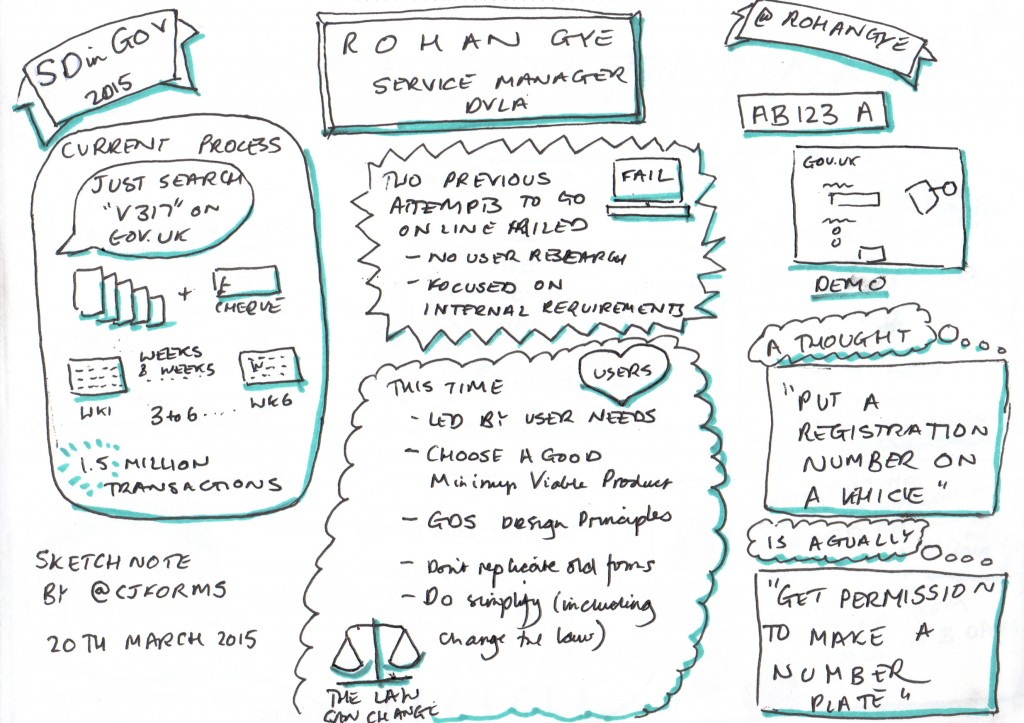 SD in GOV
2015
ROHAN GYE
SERVICE MANAGER
DVLA
@ROHANGYE
CURRENT PROCESS
JUST SEARCH
"V317" ON
GOV.UK
+
£
CHEQUE
WEEKS
& WEEKS
WK1
3 to 6 ....
WK6
1.5 MILLION
TRANSACTIONS
SKETCHNOTE
BY @CJFORMS
20TH MARCH 2015
TWO PREVIOUS
ATTEMPTS TO GO
ONLINE FAILED
- NO USER RESEARCH
- FOCUSED ON
INTERNAL REQUIREMENTS
FAIL
USERS
THIS TIME
- LED BY USER NEEDS
- CHOOSE A GOOD
Minimum Viable Product
- GDS Design Principles
- Don't replicate old forms
- Do simplify (including
change the law)
THE LAW
CAN CHANGE
AB123 A
GOV.UK
DEMO
A THOUGHT
"PUT A
REGISTRATION
NUMBER ON
A VEHICLE"
IS ACTUALLY
"GET PERMISSION
TO MAKE A
NUMBER
PLATE"